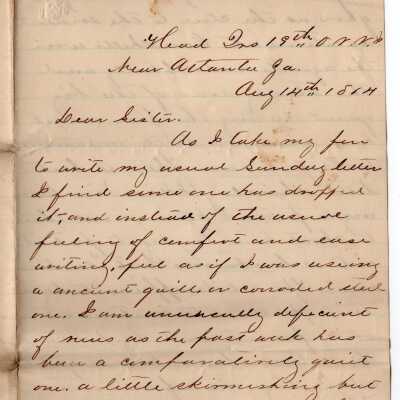 Head Qrs 19th O.V.V.I
Near Atlanta Ga.
Aug 14th 1864
Dear Sister.
As I take my pen
to write my usual Sunday letter
I find some one has dropped
it, and instead of the usual
feeling of comfort and ease
writing, feel as if I was useing
a ancient quill, or corroded steel
one. I am unusually deficient
of news as the past week has
been a comparatively quiet
one. a little skirmishing but